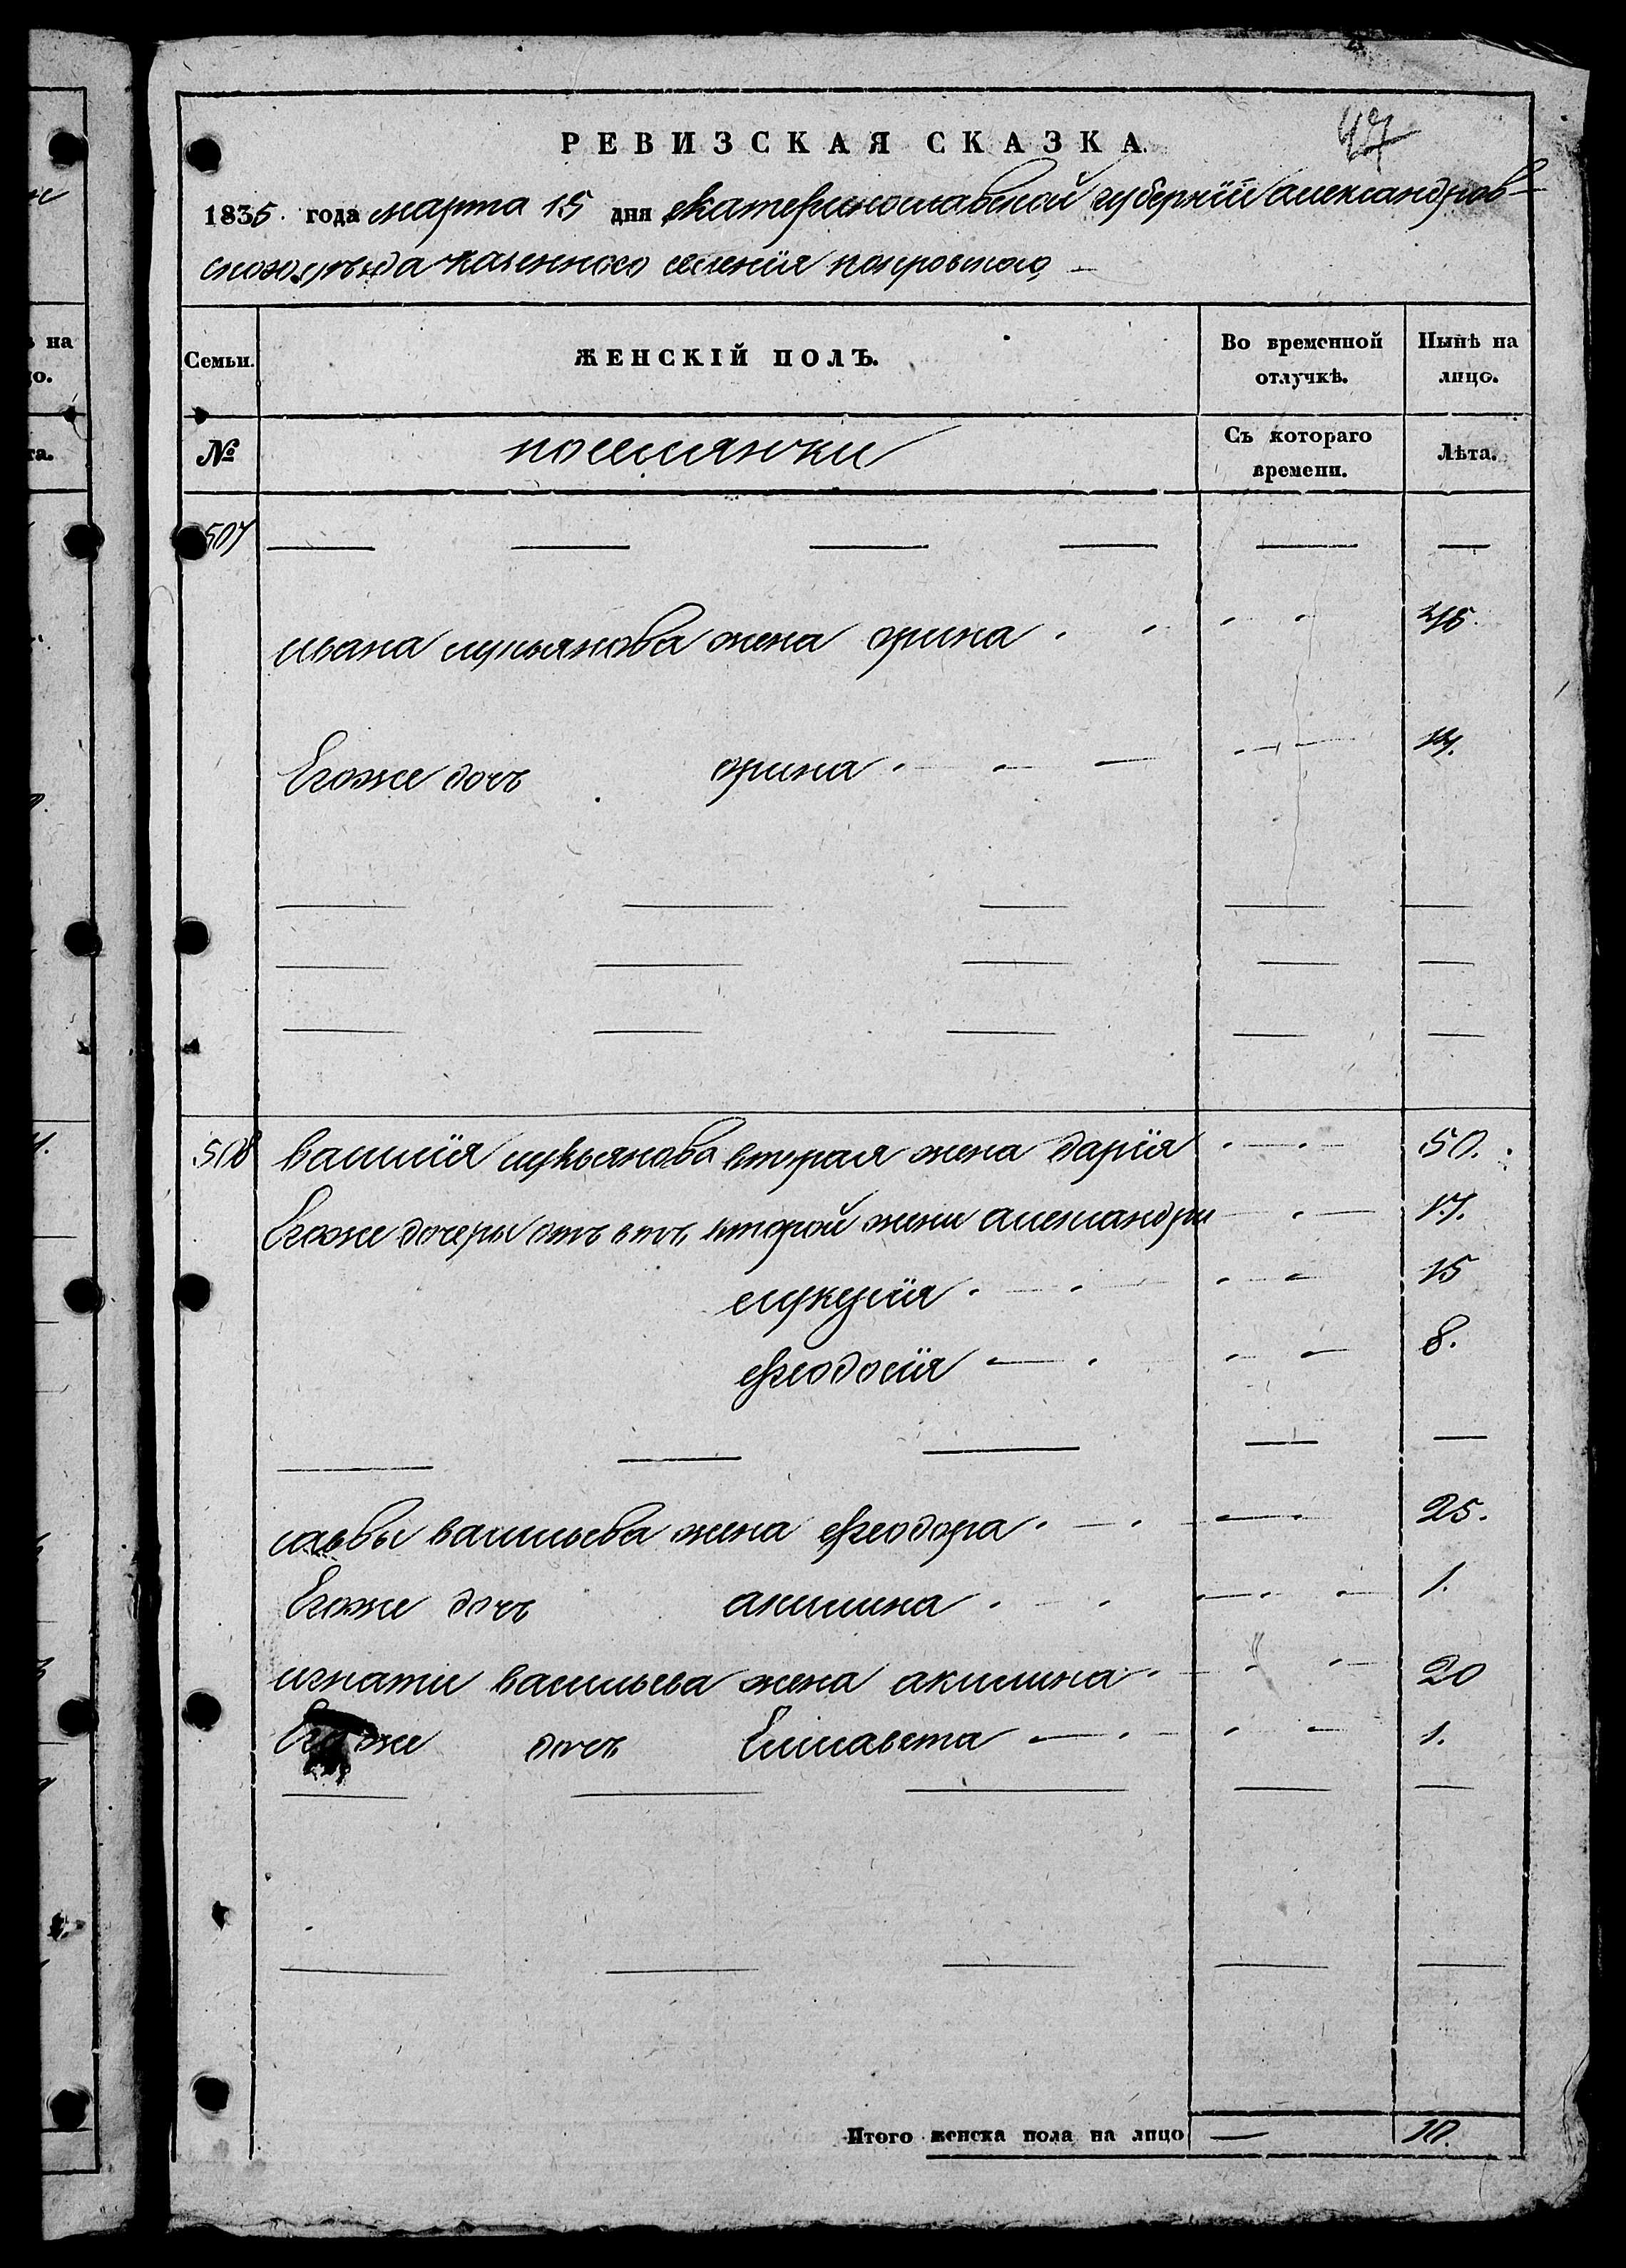 47
РЕВИЗСКАЯ СКАЗКА.
1835. года марта 15 дня екатеринославской губернїи александров-
скаго уезда казенного селенїя покровского
Семьи. ЖЕНСКІЙ ПОЛЪ. Во временной отлучкѣ. Нынѣ на лицо.
№ поселянки Съ котораго времени. Лѣта.
507
ивана лукьянова жена орина 46.
Егоже дочъ орина 14.
508 василїя лукьянова вторая жена дарїя 50.
Егоже дочеры отъ второй жени александра 17.
лукерїя 15
феодосїя 8.
савы васильева жена феодора 25.
Егоже дочъ акилина 1.
игнати васильева жена акилина 20
Егоже дочъ Елисавета 1.
Итого женска пола на лицо 10.
на
цо.
та.